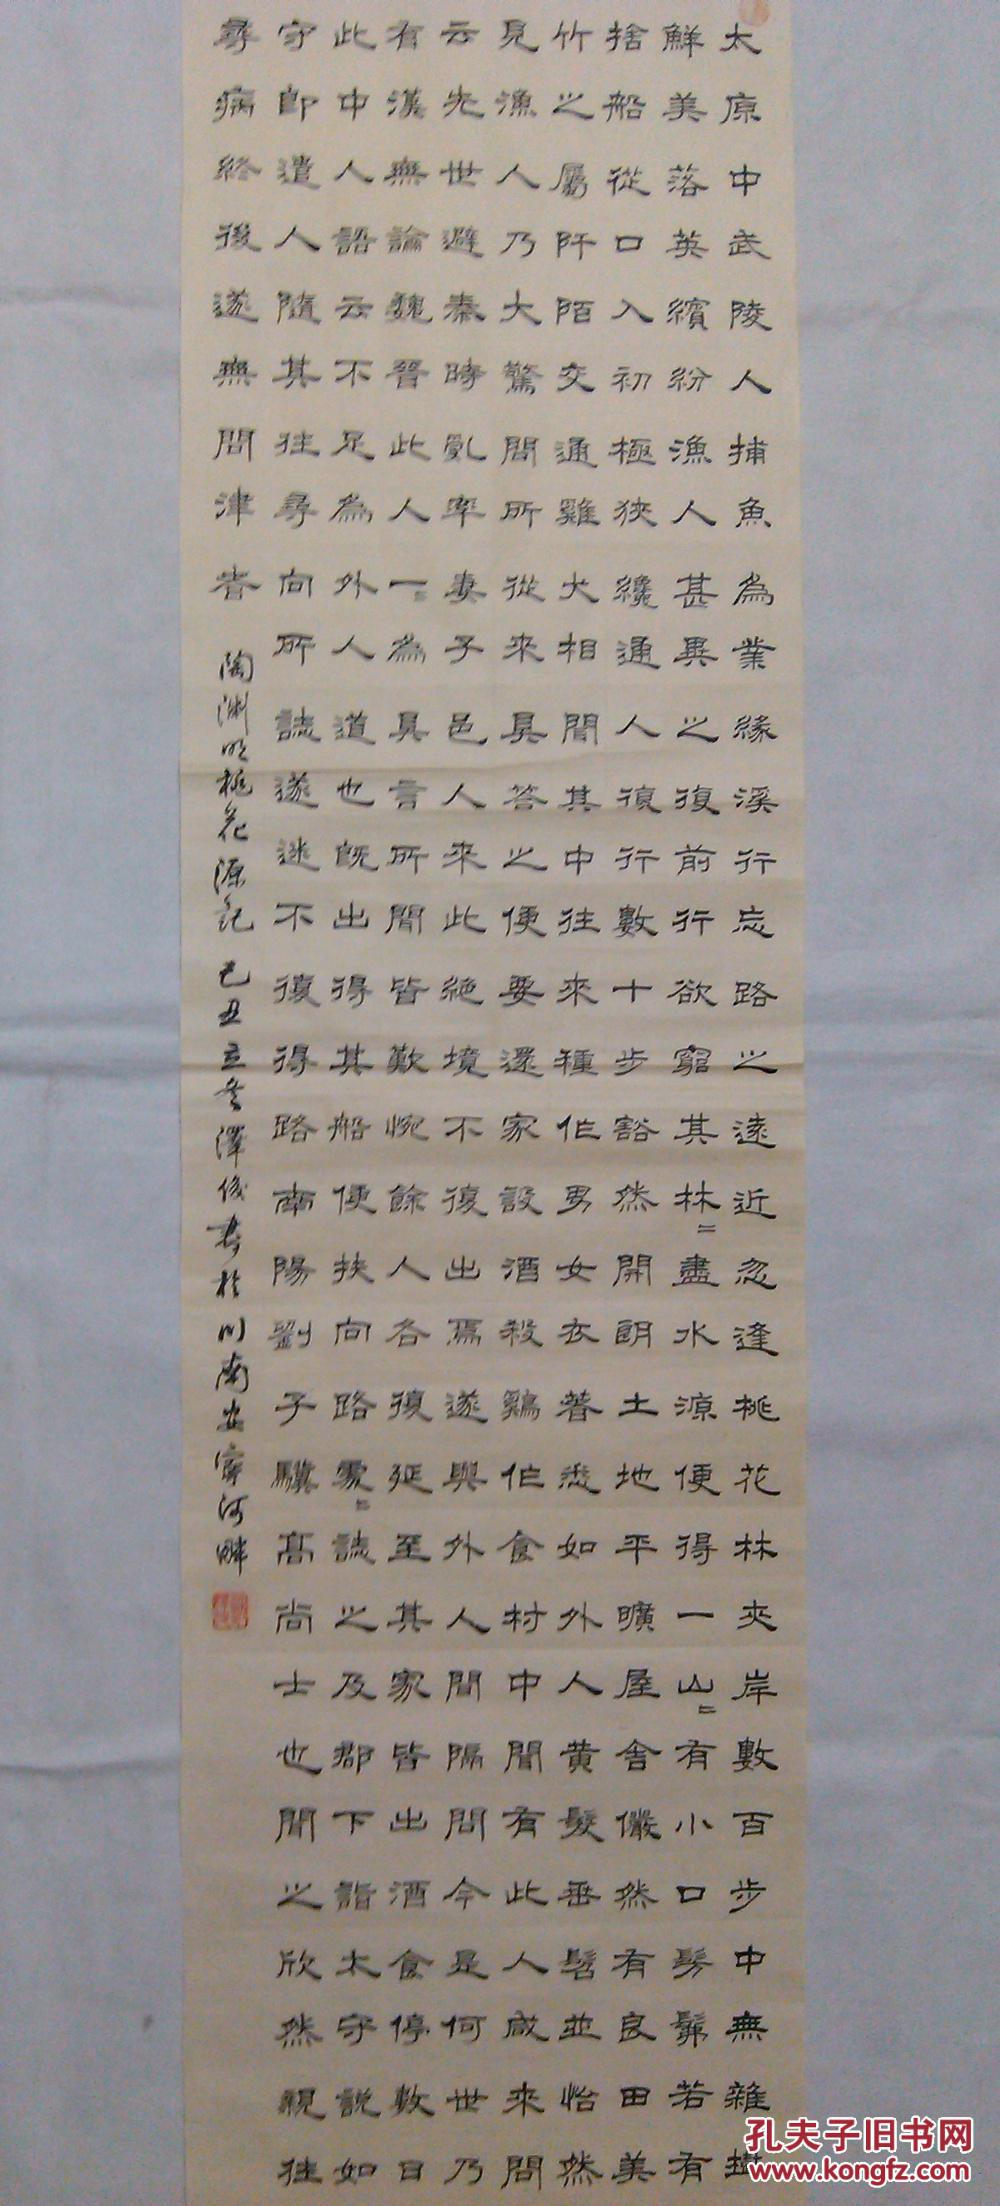 太原中武陵人捕魚為業緣溪行忘路之遠近忽逢桃花林夾岸數百步中無雜樹
鮮美落英繽紛漁人甚異之復前行欲窮其林〻盡水源便得一山〻有小口髣髴若有
捨船從口入初極狹纔通人復行數十步豁然開朗土地平曠屋舍儼然有良田美
竹之屬阡陌交通雞犬相聞其中往來種作男女衣著悉如外人黄髮垂髫並怡然
見漁人乃大驚問所從來具答之便要還家設酒殺鷄作食村中聞有此人咸來問
云先世避秦時亂率妻子邑人來此絶境不復出焉遂與外人間隔問今是何世乃
有漢無論魏晉此人一〻為具言所聞皆歎惋餘人各復延至其家皆出酒食停數日
此中人語云不足為外人道也既出得其船便扶向路處〻誌之及郡下詣太守說如
守即遣人隨其往尋向所誌遂迷不復得路南陽劉子驥高尚士也聞之欣然親往
尋病終後遂無問津者
陶淵明桃花源記 己丑立冬澤俊書於川南安寧河畔
孔夫子旧书网
www.kongfz.com